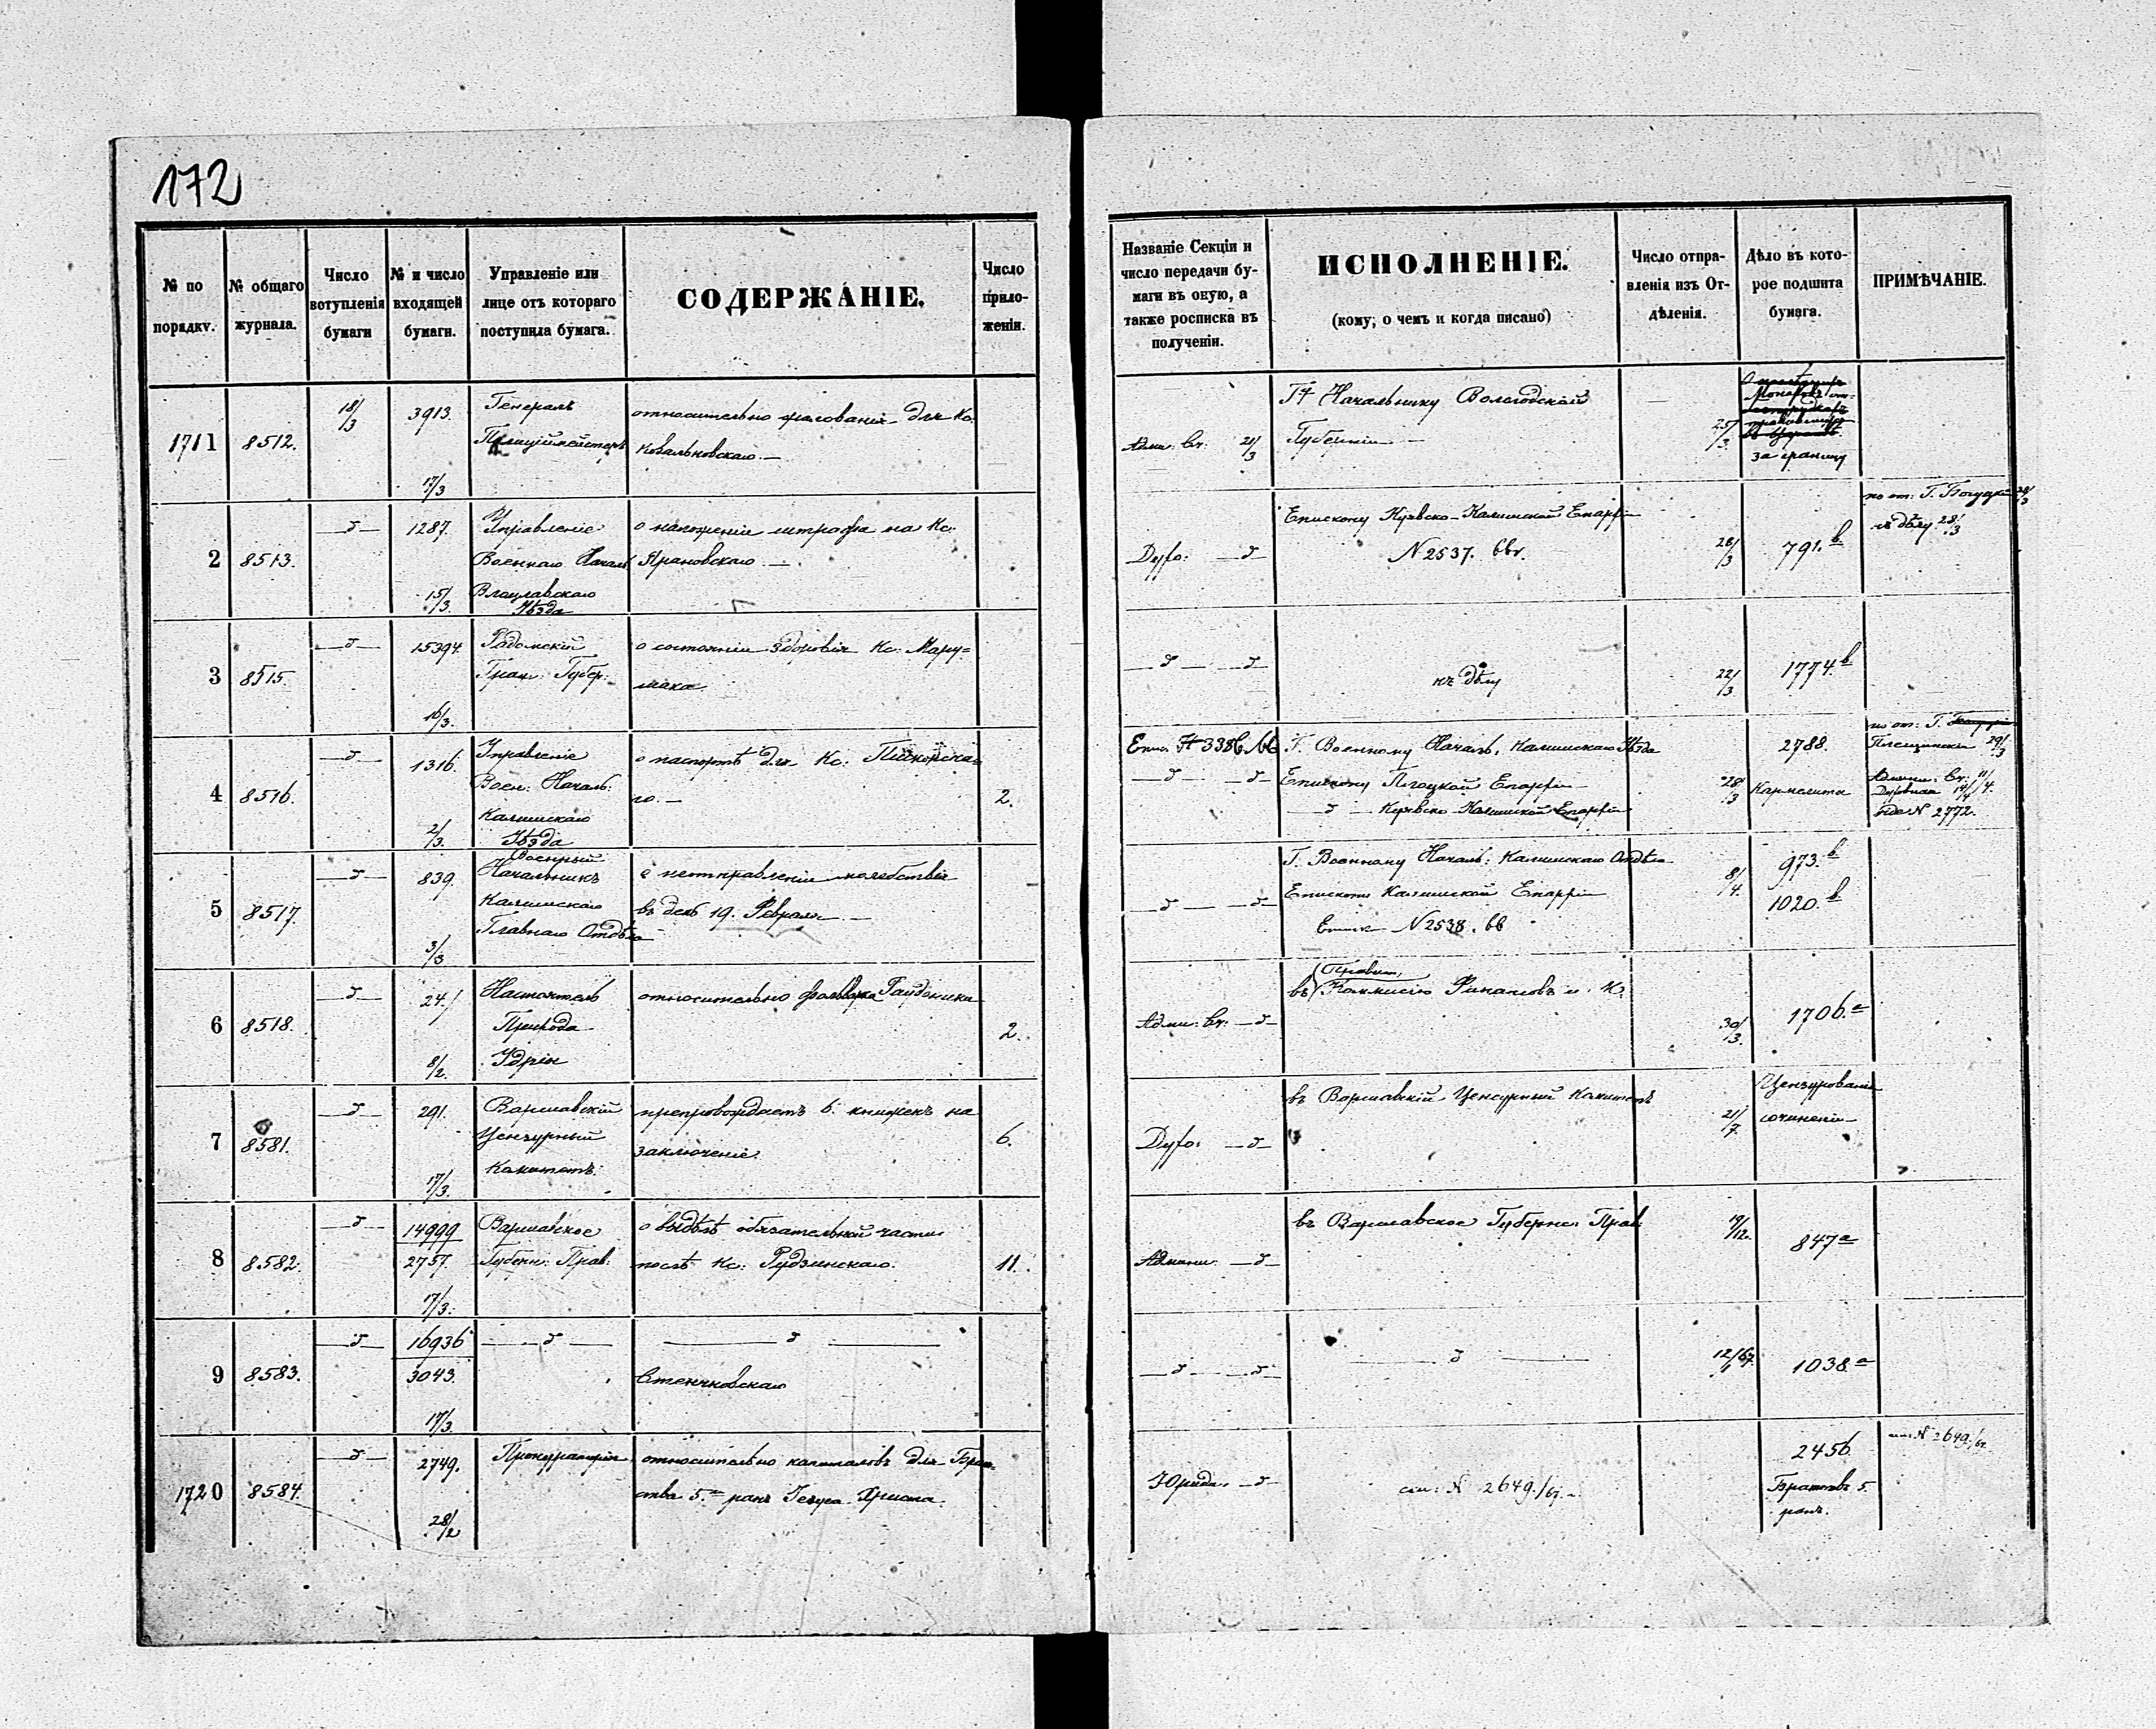 172
№ по порядку.
№ общаго журнала.
Число вотупленія бумаги
№ и число входящей бумаги.
Управленіе или лице отъ котораго поступила бумага.
СОДЕРЖАНІЕ.
Число приложеніи.
Названіе Секціи и число передачи бумаги въ оную, а также росписка въ полученіи.
ИСПОЛНЕНІЕ.
(кому, о чемъ и когда писано)
Число отправленія изъ Отдѣленія.
Дѣло въ которое подшита бумага.
ПРИМѢЧАНІЕ.
1711 8512. 18/3 3913. 17/3
Генералъ
Полиціймейстеръ
относительно жалованія для Кс.
Ковальковскаго.—
Адми: Вт: 21/3
Начальнику Вологодской
Губерніи —
25/3
за границу
2 8513. —д— 1287. 15/3
Управленіе
Военнаго Началь
Влоцлавскаго
Уѣзда
о наложеніи штрафа на Кс.
Духо: —д—
Епископу Куявско-Калишской Епархіи
N 2537. ббг.
28/3
791.b
по от: Г.
къ дѣлу 28/3
3 8515. —д— 15394. 16/3
Радомскій
Граж: Губер:
о состояніи здоровія Кс: Мару=
шака
—д— —д
къ дѣлу
22/3
1774.b
4 8516. —д— 1316. 2/3
Управленіе
Воен: Началь:
Калишскаго
Уѣзда
о паспортѣ для Кс:
го.—
2.
3386
Г. Военному Началь. Калишскаго Уѣзда
—д— —д—
Епископу Плоцкой Епархіи—
—д— Куявско Калишской Епархіи
28/3
2788.
Кармелита
по от: Г.
29/3
N 2772.
5 8517. —д— 839. 3/3
Военный
Начальникъ
Калишскаго
Главнаго Отдѣла
о неотправленіи молебствія
въ день 19. Февраля.—
—д— —д—
Г. Военному Началь: Калишскаго Отдѣла
Епископу Калишской Епархіи
N 2538. бб
8/4.
973.b
1020.b
6 8518. —д— 24. 8/2.
Настоятель
Прихода
относительно фольварка
2.
Адми: Вт: —д—
Правит.
въ Коммисію Финансовъ и. К.
30/3.
1706.a
7 8581. —д— 291. 17/3.
Варшавскій
Цензурный
Комитетъ.
препровождаетъ 6. книжекъ на
заключеніе.
6.
Духо: —д—
въ Варшавскій Ценсурный Комитетъ
21/7.
Цензурованіе
сочиненіи—
8 8582. —д— 14999 2757. 17/3.
Варшавское
Губерн: Прав:
о выдѣлѣ обязательной части
послѣ Кс: Рудзинскаго.
11.
Админи. —д—
въ Варшавское Губернс. Прав.
19/12.
847a
9 8583. —д— 16936 3043. 17/3.
—д— —д—
—д— —д—
—д—
12/1 67.
1038a
1720 8584. —д— 2749. 28/2
Прокураторія
относительно капиталовъ для Брат=
ства 5.ти ранъ Іезуса Христа.
Юриди. —д—
см: N 2649./67.—
2456
Братств. 5.
ранъ.
см. N 2649./67.